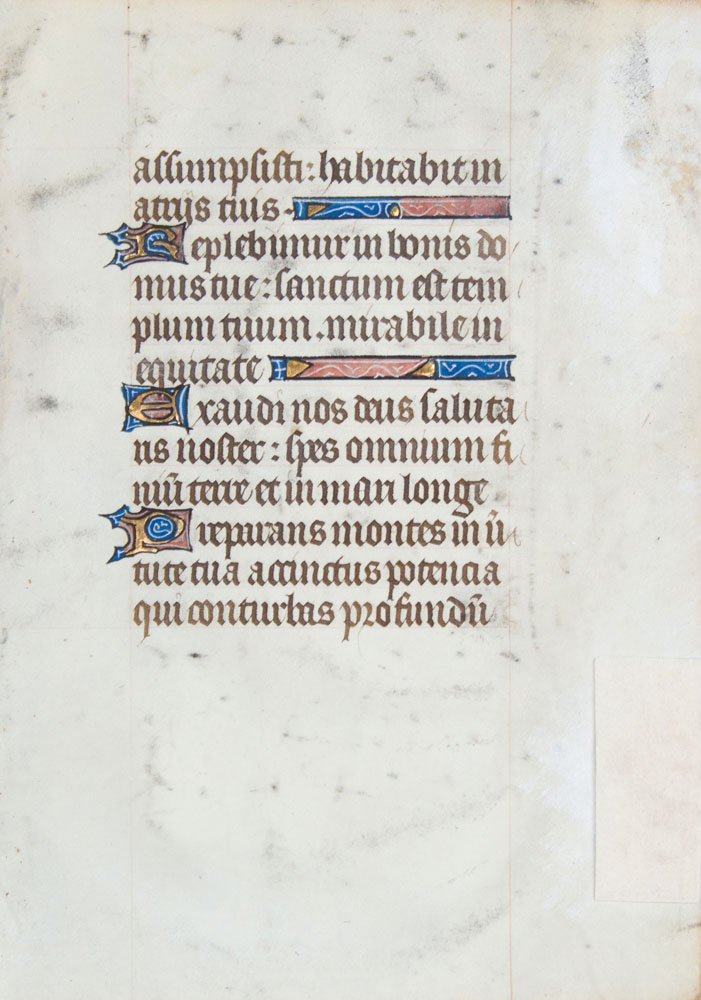 assumpsisti: habitabit in
atriis tuis.
Replebimur in bonis do
mus tue: sanctum est tem
plum tuum. mirabile in
equitate
Exaudi nos deus saluta
ris noster: spes omnium fi
niū terre et in mari longe
Preparans montes in ũ
tute tua accinctus potencia
qui conturbas profundū